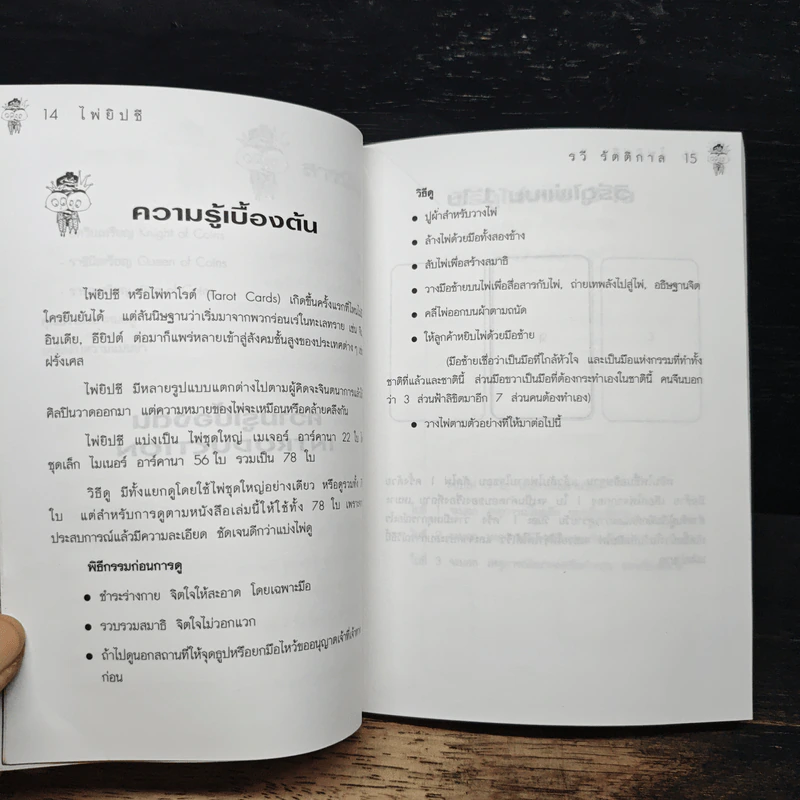 14 ไพ่ยิปซี
ความรู้เบื้องต้น
ไพ่ยิปซี หรือไพ่ทาโรต์ (Tarot Cards) เกิดขึ้นครั้งแรกที่ไหนไม่มี
ใครยืนยันได้ แต่สันนิษฐานว่าเริ่มมาจากพวกร่อนเร่ในทะเลทราย เช่น
อินเดีย, อียิปต์ ต่อมาก็แพร่หลายเข้าสู่สังคมชั้นสูงของประเทศต่างๆ
ฝรั่งเศส
ไพ่ยิปซี มีหลายรูปแบบแตกต่างไปตามผู้คิดจะจินตนาการแล้วให้
ศิลปินวาดออกมา แต่ความหมายของไพ่จะเหมือนหรือคล้ายคลึงกัน
ไพ่ยิปซี แบ่งเป็น ไพ่ชุดใหญ่ เมเจอร์ อาร์คานา 22 ใบ
ชุดเล็ก ไมเนอร์ อาร์คานา 56 ใบ รวมเป็น 78 ใบ
วิธีดู มีทั้งแยกดูโดยใช้ไพ่ชุดใหญ่อย่างเดียว หรือดูรวมทั้ง
ใบ แต่สำหรับการดูตามหนังสือเล่มนี้ให้ใช้ทั้ง 78 ใบ เพราะ
ประสบการณ์แล้วมีความละเอียด ชัดเจนดีกว่าแบ่งไพ่ดู
พิธีกรรมก่อนการดู
● ชำระร่างกาย จิตใจให้สะอาด โดยเฉพาะมือ
● รวบรวมสมาธิ จิตใจไม่วอกแวก
● ถ้าไปดูนอกสถานที่ให้จุดธูปหรือยกมือไหว้ขออนุญาตเจ้าที่เจ้าทาง
ก่อน
รวี รัตติกาล 15
วิธีดู
● ปูผ้าสำหรับวางไพ่
● ล้างไพ่ด้วยมือทั้งสองข้าง
● สับไพ่เพื่อสร้างสมาธิ
● วางมือซ้ายบนไพ่เพื่อสื่อสารกับไพ่, ถ่ายเทพลังไปสู่ไพ่, อธิษฐานจิต
● คลี่ไพ่ออกบนผ้าตามถนัด
● ให้ลูกค้าหยิบไพ่ด้วยมือซ้าย
(มือซ้ายเชื่อว่าเป็นมือที่ใกล้หัวใจ และเป็นมือแห่งกรรมที่ทำทั้ง
ชาติที่แล้วและชาตินี้ ส่วนมือขวาเป็นมือที่ต้องกระทำเองในชาตินี้ คนจีนบอก
ว่า 3 ส่วนฟ้าลิขิตมาอีก 7 ส่วนคนต้องทำเอง)
● วางไพ่ตามตัวอย่างที่ให้มาต่อไปนี้